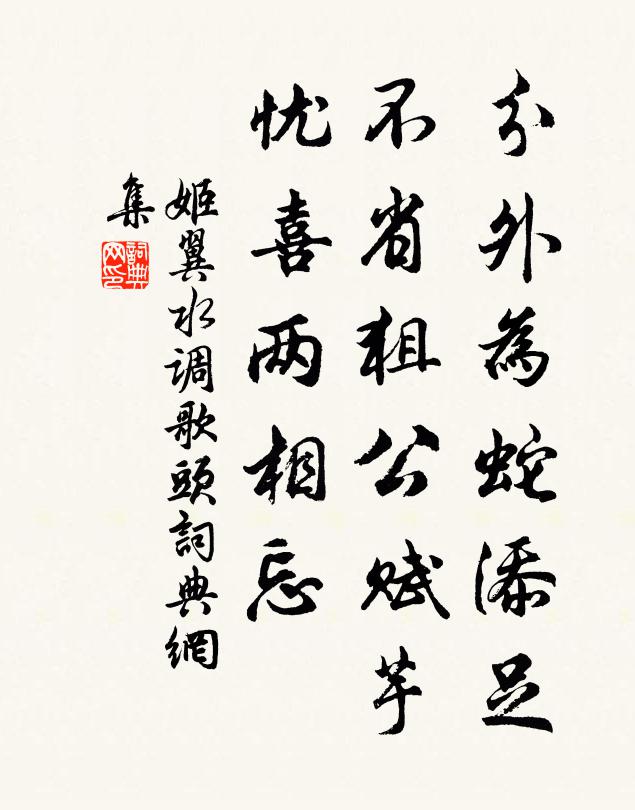 分外為蛇添足
不省狙公赋芋
忧喜两相忘
姬翼水调歌頭詞典網
集
詞典網印